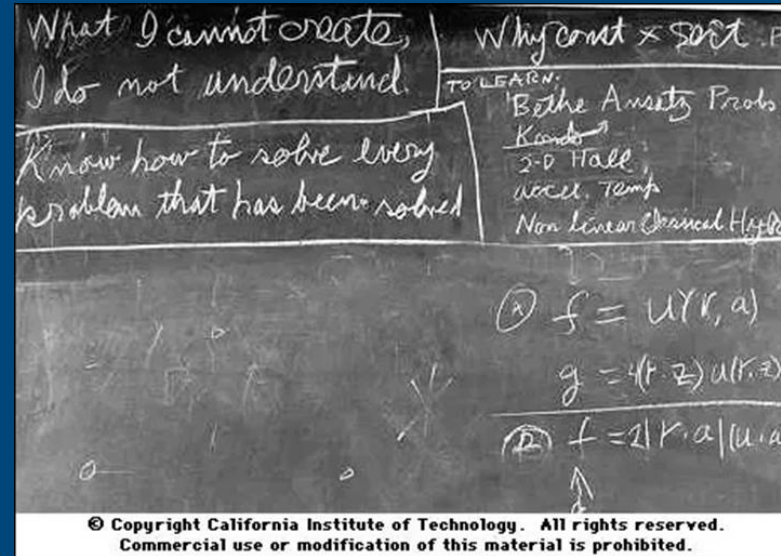 What I cannot create,
I do not understand.
Know how to solve every
problem that has been solved
Why const × sort .
TO LEARN:
Bethe Ansatz Prob
Kondo
2-D Hall
accel. Temp
Non Linear Classical Hydro
Ⓐ f = u(r, a)
g = 4(r·z) u(r, z)
Ⓑ f = 2|r·a|(u·a
© Copyright California Institute of Technology. All rights reserved.
Commercial use or modification of this material is prohibited.